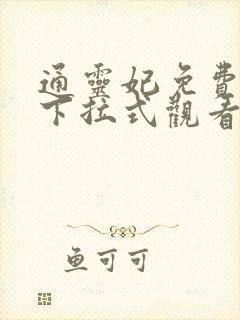 通靈妃免費
下拉式觀看
鱼可可